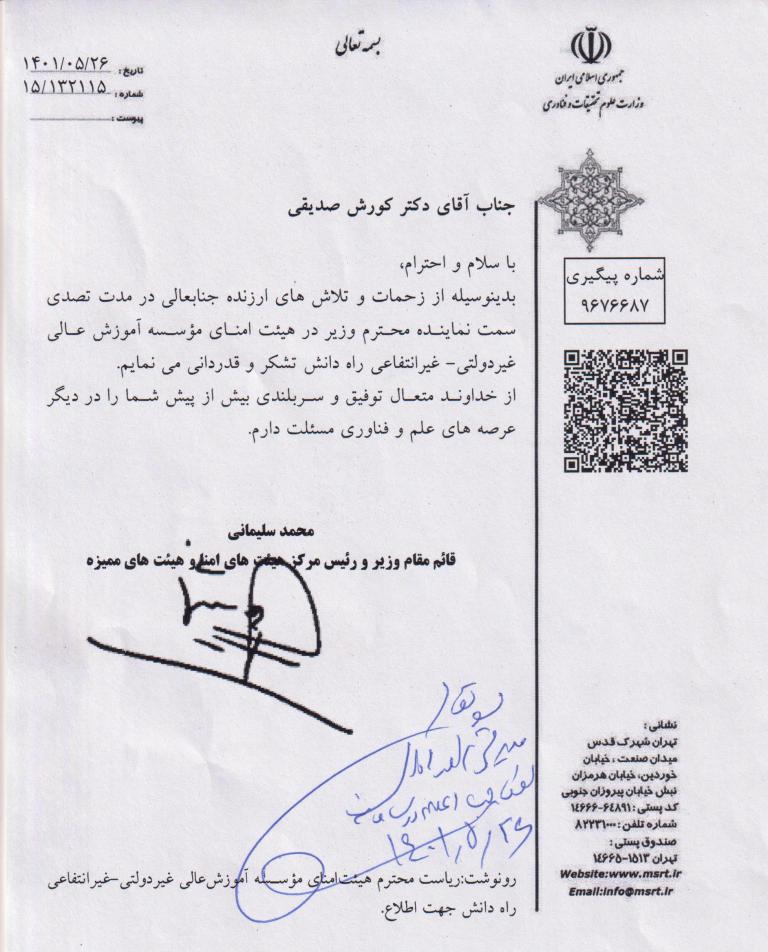 بسمه تعالی
جمهوری اسلامی ایران
وزارت علوم تحقیقات و فناوری
تاریخ: ۱۴۰۱/۰۵/۲۶
شماره: ۱۵/۱۳۲۱۱۵
پیوست:
جناب آقای دکتر کورش صدیقی
با سلام و احترام،
بدینوسیله از زحمات و تلاش های ارزنده جنابعالی در مدت تصدی
سمت نماینده محترم وزیر در هیئت امنای مؤسسه آموزش عالی
غیردولتی- غیرانتفاعی راه دانش تشکر و قدردانی می نمایم.
از خداوند متعال توفیق و سربلندی بیش از پیش شما را در دیگر
عرصه های علم و فناوری مسئلت دارم.
شماره پیگیری
۹۶۷۶۶۸۷
محمد سلیمانی
قائم مقام وزیر و رئیس مرکز هیئت های امنا و هیئت های ممیزه
نشانی:
تهران شهرک قدس
میدان صنعت، خیابان
خوردین، خیابان هرمزان
نبش خیابان پیروزان جنوبی
کد پستی: ۱۴۶۶۶-۶۴۸۹۱
شماره تلفن: ۸۲۲۳۱۰۰۰
صندوق پستی:
تهران ۱۵۱۳-۱۴۶۶۵
Website:www.msrt.ir
Email:info@msrt.ir
رونوشت:ریاست محترم هیئت‌امنای مؤسسه آموزش‌عالی غیردولتی-غیرانتفاعی
راه دانش جهت اطلاع.